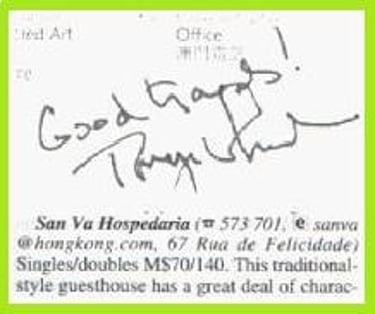 Art Office
澳門
Good travels!
San Va Hospedaria (☎ 573 701, e sanva
@hongkong.com, 67 Rua de Felicidade)
Singles/doubles M$70/140. This traditional-
style guesthouse has a great deal of charac-